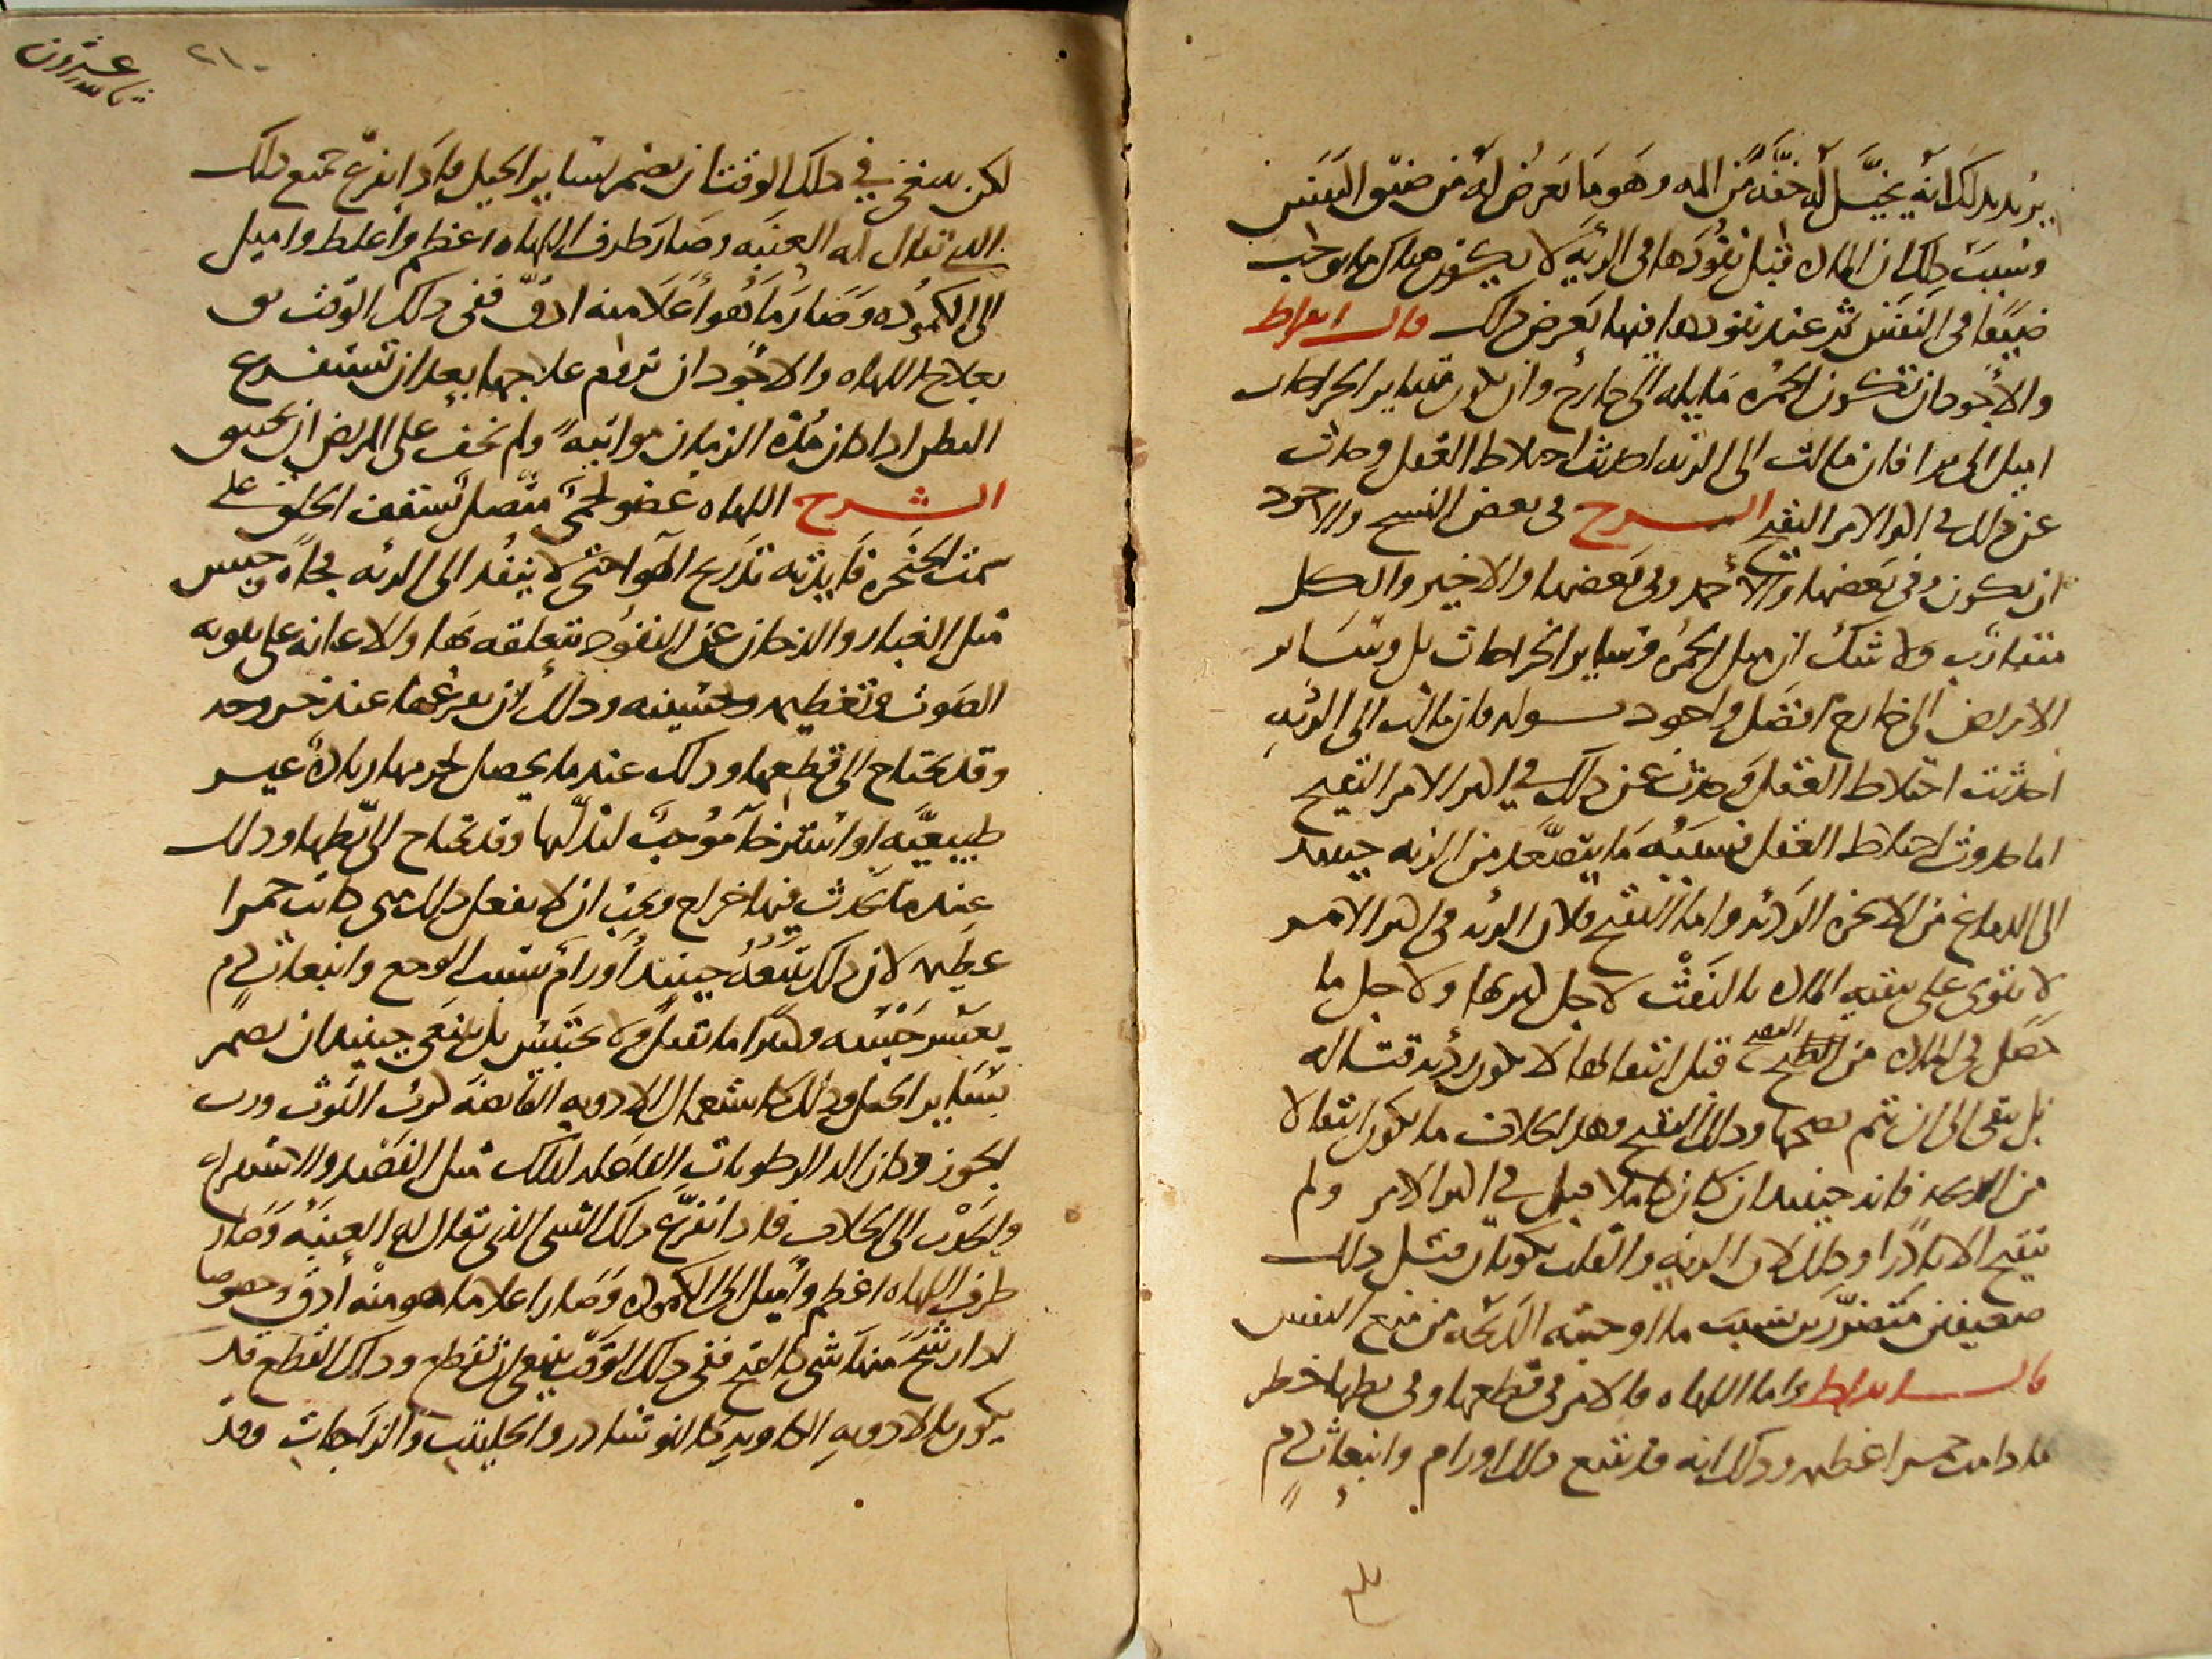 يريد بذلك انه يخيل له خفة من المه وهو ما يعرض له من ضيق النفس
وسبب ذلك ان المادة قبل نفوذها في الرية لا يكون هناك ما يوجب
ضيقا في النفس ثم عند نفوذها فيها يعرض ذلك قال ابقراط
والاجود ان تكون الحمرة مايله الى خارج وان يكون سائر الخراجات
اميل الى برا فان مالت الى الرئه احدثت اختلاط العقل وحدث
عن ذلك في اكثر الامر التقيح الشرح في بعض النسخ والاجود
ان يكون وفي بعضها والاحمد وفي بعضها والاخير والكل
متقارب ولا شك ان ميل الحمرة وسائر الخراجات بل وسائر
الامراض الى خارج افضل واجود قوله فان مالت الى الرئه
احدثت اختلاط العقل وحدث عن ذلك في اكثر الامر التقيح
اما حدوث اختلاط العقل فسببه ما يتصعد من الرئه حينئذ
الى الدماغ من الابخره الردئه واما التقيح فلان الرئه في اكثر الامر
لا تقوى على تنقيه المادة بالنفث لاجل ولاجل ما
حصل في المادة من النضج قبل انتقالها لا تكون رديه قتاله
بل تبقى الى ان يتم نضجها وذلك التقيح وهذا بخلاف ما يكون انتقالا
من الذبحه فانه حينئذ ان كان قتل في اكثر الامر ولم
يتقيح الا نادرا وذلك لان الرئه والقلب يكونان قبل ذلك
ضعيفين متضررين بسبب ما اوجبته الذبحه من منع النفس
قال ابقراط واما اللهاه فالامر في قطعها وفي بطها خطر
ما دامت حمرا عظيمه وذلك انه قد يتبع ذلك اورام وانبعاث دم
بلغ
عشرون
٢١٠
لكن ينبغي في ذلك الوقت ان يضمر بسائر الحيل فاذا انفرغ جميع ذلك
الذي يقال له العنبه وصار طرف اللهاه اعظم واغلظ واميل
الى الكموده وصار ما هو اعلا منه ادق ففي ذلك الوقت
بعلاج اللهاه والاجود ان تروم علاجها بعد ان تستفرغ
البطن اذا كان مده الزمان مواتيه ولم تخف على المريض ان يختنق
الشرح اللهاه عضو لحمي متصل بسقف الحلق على
سمت الحنجره فايدته تدريج الهوا حتى لا ينفذ الى الرئه فجاه وحبس
مثل الغبار والدخان عن النفوذ بتعلقه بها والاعانه على تقويه
الصوت وتعظيمه وتحسينه وذلك ان عند خروجه
وقد يحتاج الى قطعها وذلك عندما يحصل لجرمها زيادة غير
طبيعيه او استرخا موجب لتدليها وقد تحتاج الى بطها وذلك
عندما يحدث فيها خراج ويجب ان لا يفعل ذلك متى كانت حمرا
عظيمه لان ذلك يتبعه حينئذ اورام بسبب الوجع وانبعاث دم
يعسر حبسه وهذا ما يقتل ولا يحتبس بل ينبغي حينئذ ان يضمر
بسائر الحيل وذلك كاستعمال الادويه القابضة كرب التوث ورب
الجوز وكازاله الرطوبات الفاعله لذلك مثل الفصد والاستفراغ
والجذب الى الخلاف فاذا انفرغ ذلك الشى الذي يقال له العنبه وصار
طرف اللهاه اعظم واميل الى الكموده وصار اعلاها ما هو منه ادق وخصوصا
اذا رشح منها شى كالقيح ففي ذلك الوقت ينبغي ان تقطع وذلك القطع قد
يكون بالادويه الكاويه كالنوشادر والحلتيت والزاجات وقد